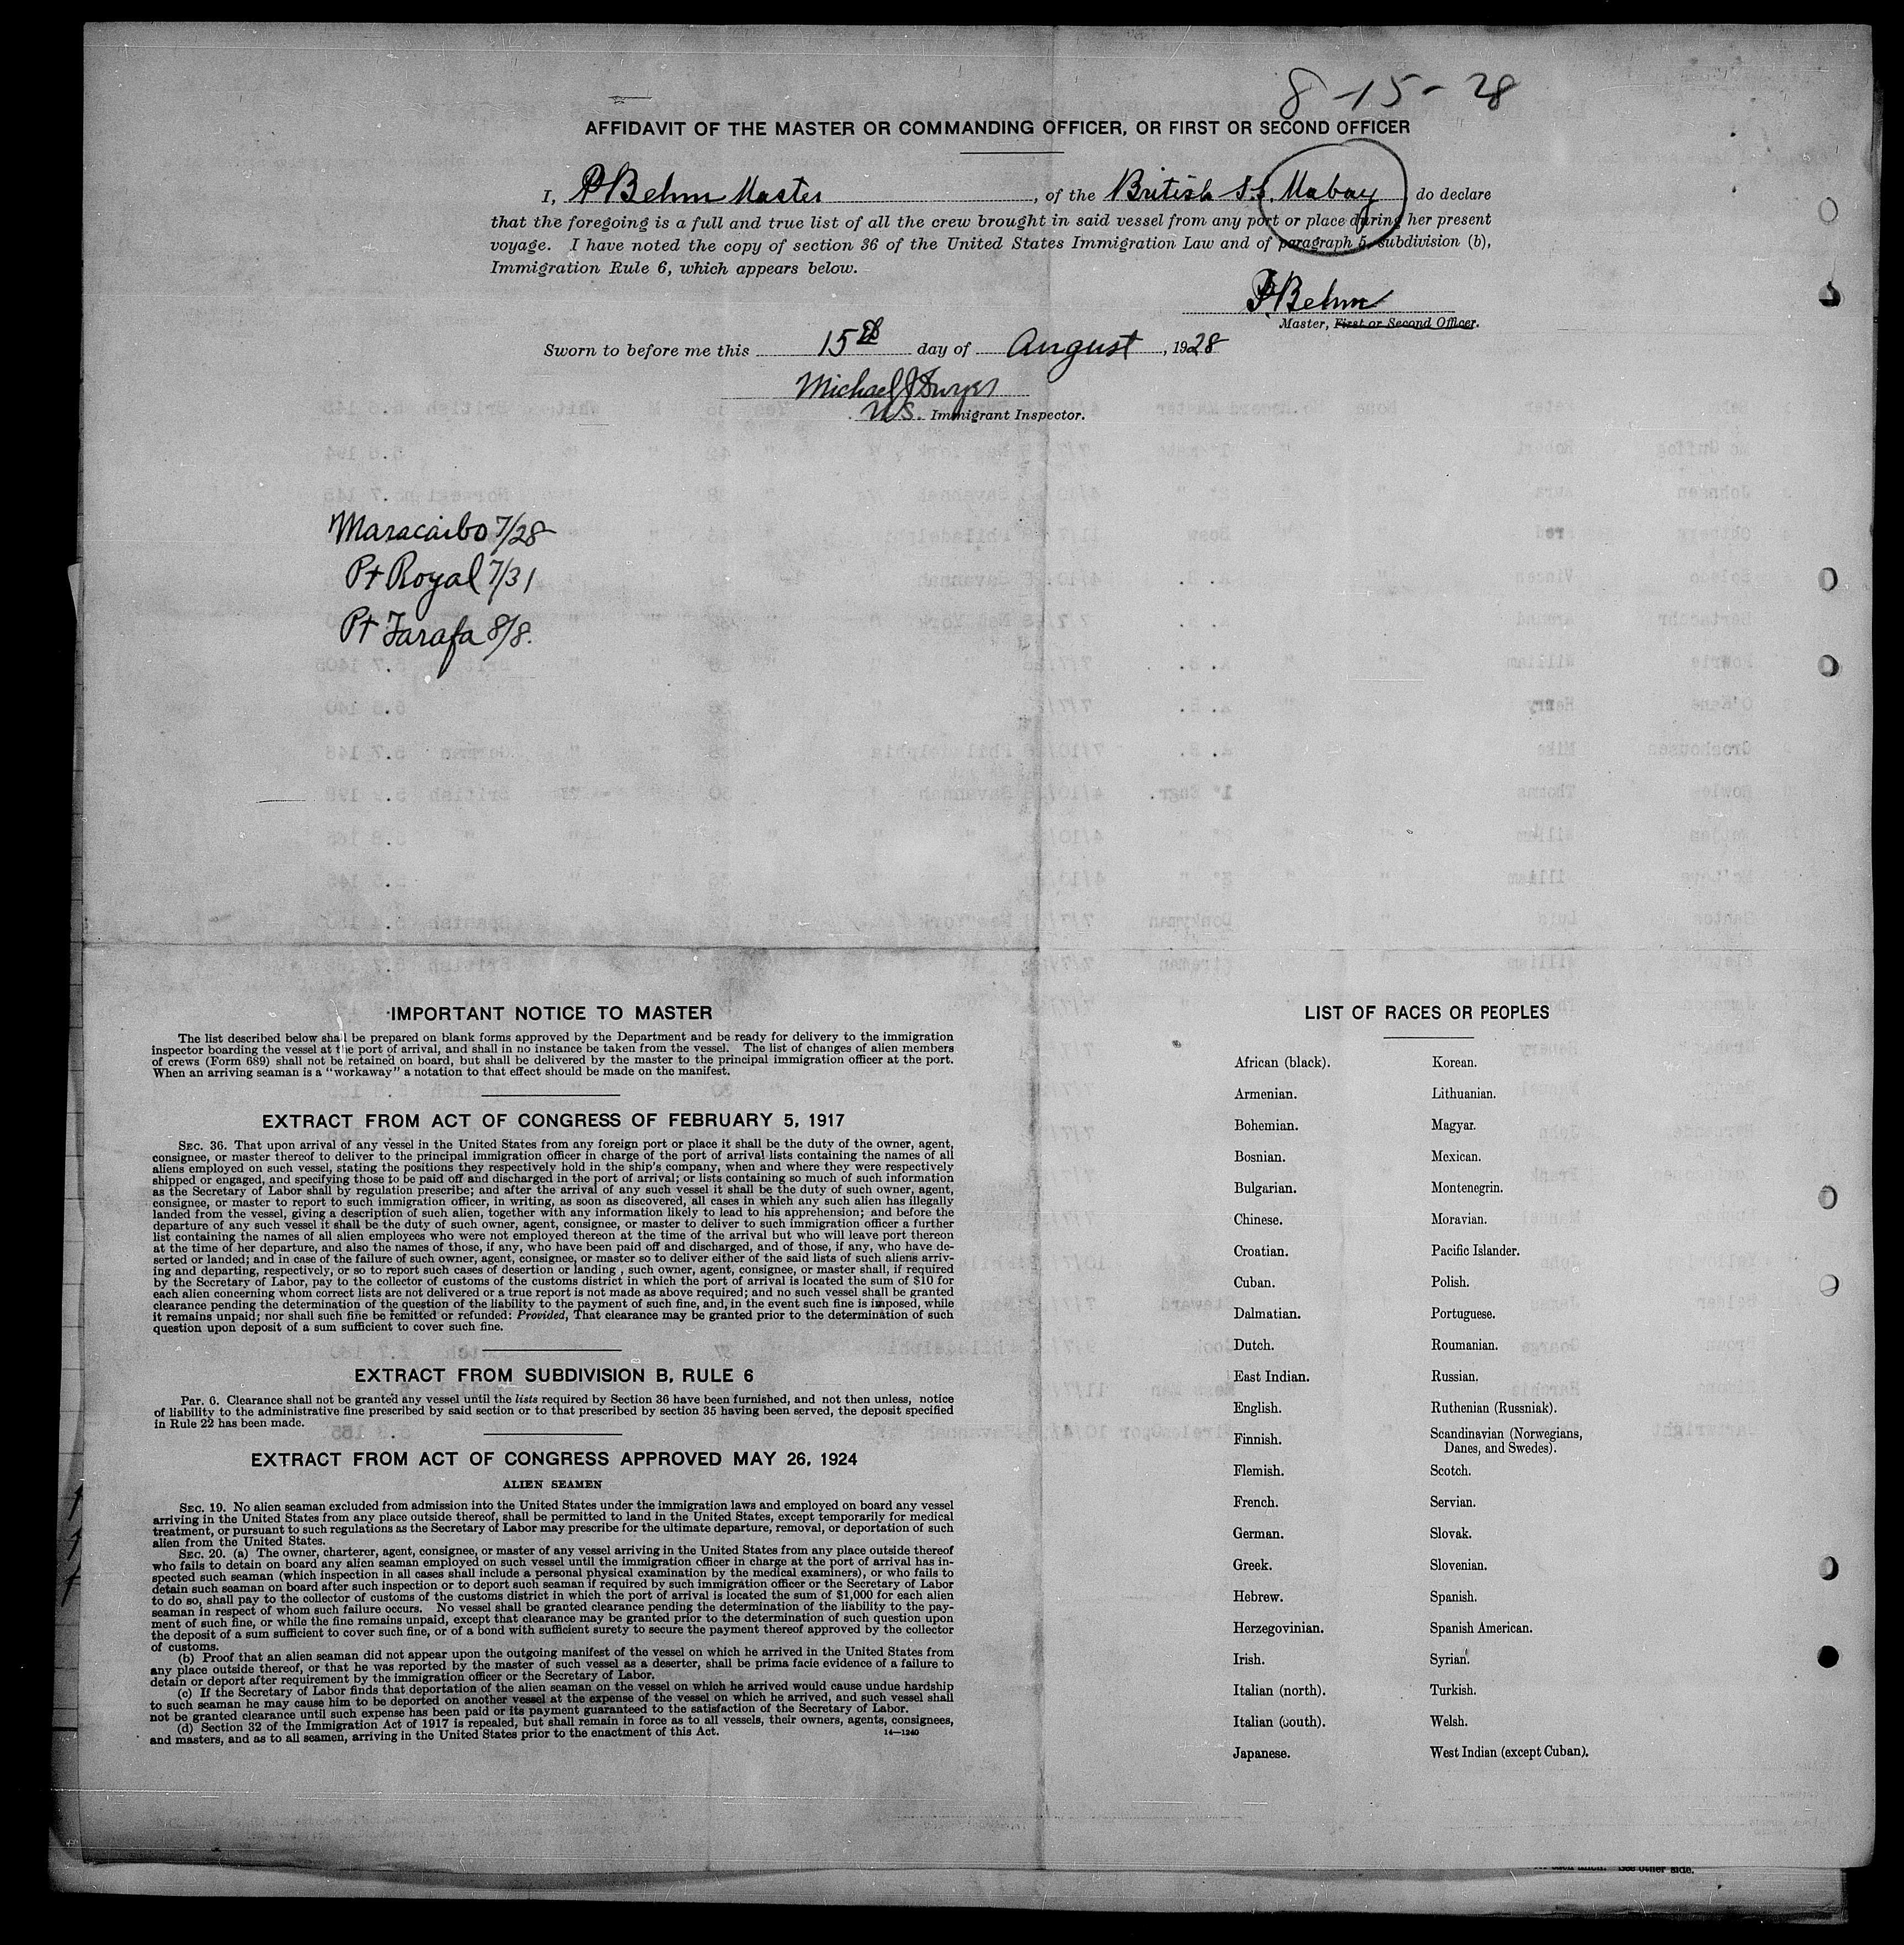 8-15-28
AFFIDAVIT OF THE MASTER OR COMMANDING OFFICER, OR FIRST OR SECOND OFFICER
I, P Behm Master, of the British S.S. Mabay do declare
that the foregoing is a full and true list of all the crew brought in said vessel from any port or place during her present
voyage. I have noted the copy of section 36 of the United States Immigration Law and of paragraph 5, subdivision (b),
Immigration Rule 6, which appears below.
P Behm
Master, First or Second Officer.
Sworn to before me this 15th day of August, 1928
Michael J Dwyer
U.S. Immigrant Inspector.
Maracaibo 7/28
Pt Royal 7/31
Pt Tarafa 8/8.
IMPORTANT NOTICE TO MASTER
The list described below shall be prepared on blank forms approved by the Department and be ready for delivery to the immigration
inspector boarding the vessel at the port of arrival, and shall in no instance be taken from the vessel. The list of changes of alien members
of crews (Form 689) shall not be retained on board, but shall be delivered by the master to the principal immigration officer at the port.
When an arriving seaman is a "workaway" a notation to that effect should be made on the manifest.
EXTRACT FROM ACT OF CONGRESS OF FEBRUARY 5, 1917
SEC. 36. That upon arrival of any vessel in the United States from any foreign port or place it shall be the duty of the owner, agent,
consignee, or master thereof to deliver to the principal immigration officer in charge of the port of arrival lists containing the names of all
aliens employed on such vessel, stating the positions they respectively hold in the ship's company, when and where they were respectively
shipped or engaged, and specifying those to be paid off and discharged in the port of arrival; or lists containing so much of such information
as the Secretary of Labor shall by regulation prescribe; and after the arrival of any such vessel it shall be the duty of such owner, agent,
consignee, or master to report to such immigration officer, in writing, as soon as discovered, all cases in which any such alien has illegally
landed from the vessel, giving a description of such alien, together with any information likely to lead to his apprehension; and before the
departure of any such vessel it shall be the duty of such owner, agent, consignee, or master to deliver to such immigration officer a further
list containing the names of all alien employees who were not employed thereon at the time of the arrival but who will leave port thereon
at the time of her departure, and also the names of those, if any, who have been paid off and discharged, and of those, if any, who have de-
serted or landed; and in case of the failure of such owner, agent, consignee, or master so to deliver either of the said lists of such aliens arriv-
ing and departing, respectively, or so to report such cases of desertion or landing , such owner, agent, consignee, or master shall, if required
by the Secretary of Labor, pay to the collector of customs of the customs district in which the port of arrival is located the sum of $10 for
each alien concerning whom correct lists are not delivered or a true report is not made as above required; and no such vessel shall be granted
clearance pending the determination of the question of the liability to the payment of such fine, and, in the event such fine is imposed, while
it remains unpaid; nor shall such fine be remitted or refunded: Provided, That clearance may be granted prior to the determination of such
question upon deposit of a sum sufficient to cover such fine.
EXTRACT FROM SUBDIVISION B, RULE 6
Par. 6. Clearance shall not be granted any vessel until the lists required by Section 36 have been furnished, and not then unless, notice
of liability to the administrative fine prescribed by said section or to that prescribed by section 35 having been served, the deposit specified
in Rule 22 has been made.
EXTRACT FROM ACT OF CONGRESS APPROVED MAY 26, 1924
ALIEN SEAMEN
SEC. 19. No alien seaman excluded from admission into the United States under the immigration laws and employed on board any vessel
arriving in the United States from any place outside thereof, shall be permitted to land in the United States, except temporarily for medical
treatment, or pursuant to such regulations as the Secretary of Labor may prescribe for the ultimate departure, removal, or deportation of such
alien from the United States.
SEC. 20. (a) The owner, charterer, agent, consignee, or master of any vessel arriving in the United States from any place outside thereof
who fails to detain on board any alien seaman employed on such vessel until the immigration officer in charge at the port of arrival has in-
spected such seaman (which inspection in all cases shall include a personal physical examination by the medical examiners), or who fails to
detain such seaman on board after such inspection or to deport such seaman if required by such immigration officer or the Secretary of Labor
to do so, shall pay to the collector of customs of the customs district in which the port of arrival is located the sum of $1,000 for each alien
seaman in respect of whom such failure occurs. No vessel shall be granted clearance pending the determination of the liability to the pay-
ment of such fine, or while the fine remains unpaid, except that clearance may be granted prior to the determination of such question upon
the deposit of a sum sufficient to cover such fine, or of a bond with sufficient surety to secure the payment thereof approved by the collector
of customs.
(b) Proof that an alien seaman did not appear upon the outgoing manifest of the vessel on which he arrived in the United States from
any place outside thereof, or that he was reported by the master of such vessel as a deserter, shall be prima facie evidence of a failure to
detain or deport after requirement by the immigration officer or the Secretary of Labor.
(c) If the Secretary of Labor finds that deportation of the alien seaman on the vessel on which he arrived would cause undue hardship
to such seaman he may cause him to be deported on another vessel at the expense of the vessel on which he arrived, and such vessel shall
not be granted clearance until such expense has been paid or its payment guaranteed to the satisfaction of the Secretary of Labor.
(d) Section 32 of the Immigration Act of 1917 is repealed, but shall remain in force as to all vessels, their owners, agents, consignees,
and masters, and as to all seamen, arriving in the United States prior to the enactment of this Act.
14—1240
LIST OF RACES OR PEOPLES
African (black). Korean.
Armenian. Lithuanian.
Bohemian. Magyar.
Bosnian. Mexican.
Bulgarian. Montenegrin.
Chinese. Moravian.
Croatian. Pacific Islander.
Cuban. Polish.
Dalmatian. Portuguese.
Dutch. Roumanian.
East Indian. Russian.
English. Ruthenian (Russniak).
Finnish. Scandinavian (Norwegians,
Danes, and Swedes).
Flemish. Scotch.
French. Servian.
German. Slovak.
Greek. Slovenian.
Hebrew. Spanish.
Herzegovinian. Spanish American.
Irish. Syrian.
Italian (north). Turkish.
Italian (south). Welsh.
Japanese. West Indian (except Cuban).
See other side.